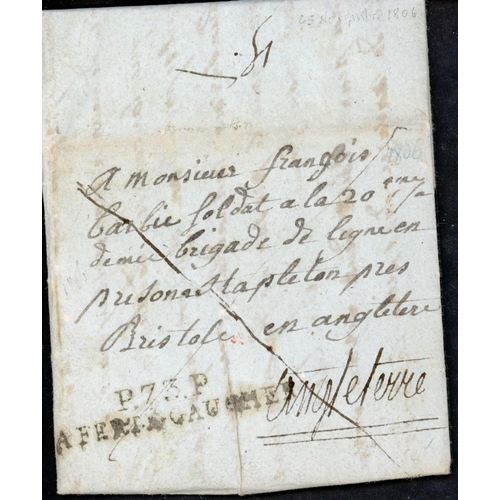 23 Novembre 1806
1806
A monsieur françois
barbié soldat a la 20 eme
demie brigade de ligne en
prison a Stapleton pres
Bristole en angletere
Angleterre
P.73.P
LA FERTE GAUCHER